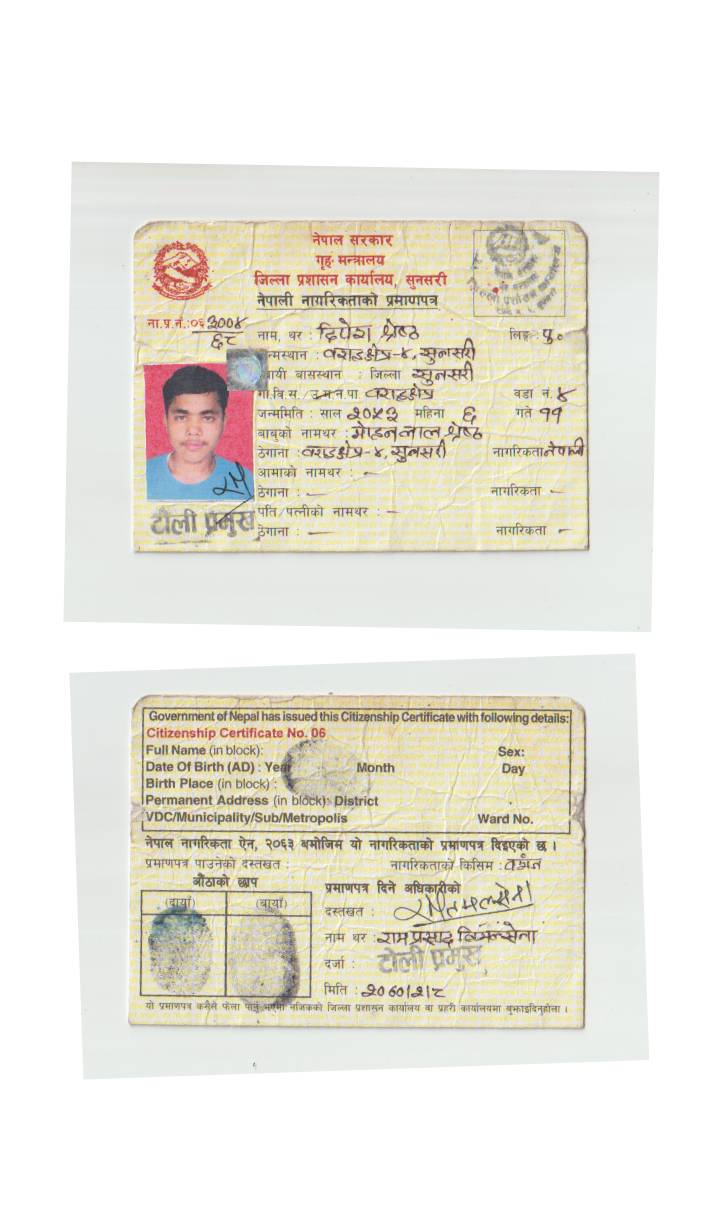 नेपाल सरकार
गृह मन्त्रालय
जिल्ला प्रशासन कार्यालय, सुनसरी
नेपाली नागरिकताको प्रमाणपत्र
ना.प्र.नं.:०६
६८
नाम, थर : दिपेश श्रेष्ठ लिङ्ग: पु॰
न्मस्थान : वराहक्षेत्र-४, सुनसरी
थायी बासस्थान : जिल्ला सुनसरी
गा.वि.स./उ.म.न.पा. वराहक्षेत्र वडा नं. ४
जन्ममिति : साल २०५३ महिना ६ गते ११
बाबुको नामथर : मोहनलाल श्रेष्ठ
ठेगाना : वराहक्षेत्र-४, सुनसरी नागरिकता नेपाली
आमाको नामथर : -
ठेगाना : - नागरिकता -
पति/पत्नीको नामथर : -
ठेगाना : - नागरिकता -
टोली प्रमुख
Government of Nepal has issued this Citizenship Certificate with following details:
Citizenship Certificate No. 06
Full Name (in block): Sex:
Date Of Birth (AD) : Year Month Day
Birth Place (in block) :
Permanent Address (in block): District
VDC/Municipality/Sub/Metropolis Ward No.
नेपाल नागरिकता ऐन, २०६३ बमोजिम यो नागरिकताको प्रमाणपत्र दिइएको छ ।
प्रमाणपत्र पाउनेको दस्तखत : नागरिकताको किसिम : वंशज
औंठाको छाप
(दायाँ) (बायाँ)
प्रमाणपत्र दिने अधिकारीको
दस्तखत :
नाम थर : राम प्रसाद
दर्जा : टोली प्रमुख
मिति :
यो प्रमाणपत्र कसैले फेला पारेमा नजिकको जिल्ला प्रशासन कार्यालय वा प्रहरी कार्यालयमा बुझाइदिनुहोला ।